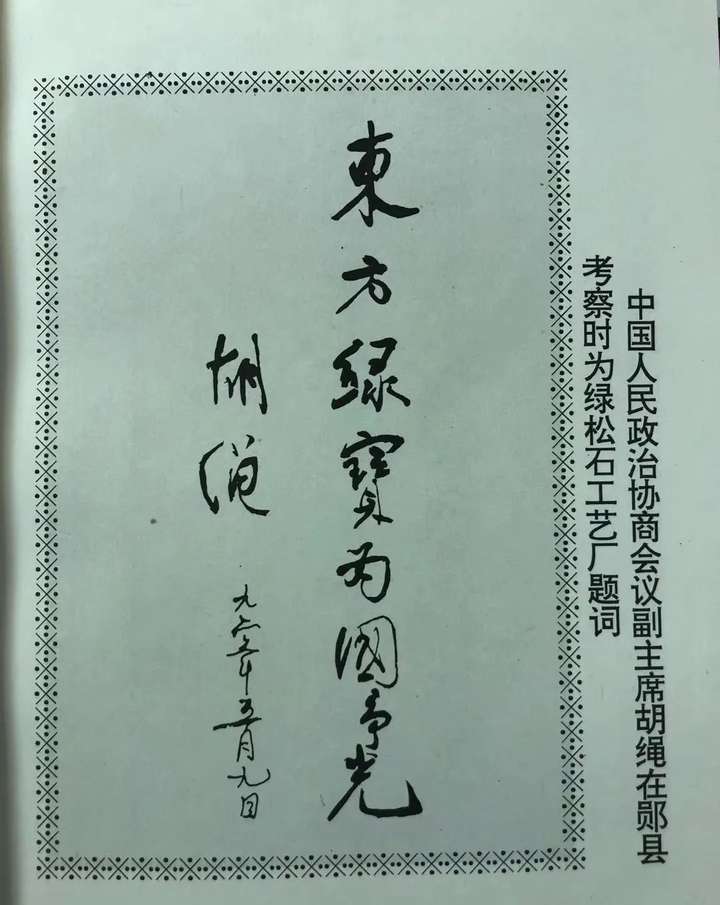 中国人民政治协商会议副主席胡绳在郧县
考察时为绿松石工艺厂题词
東方绿寶为國争光
胡绳
年五月九日